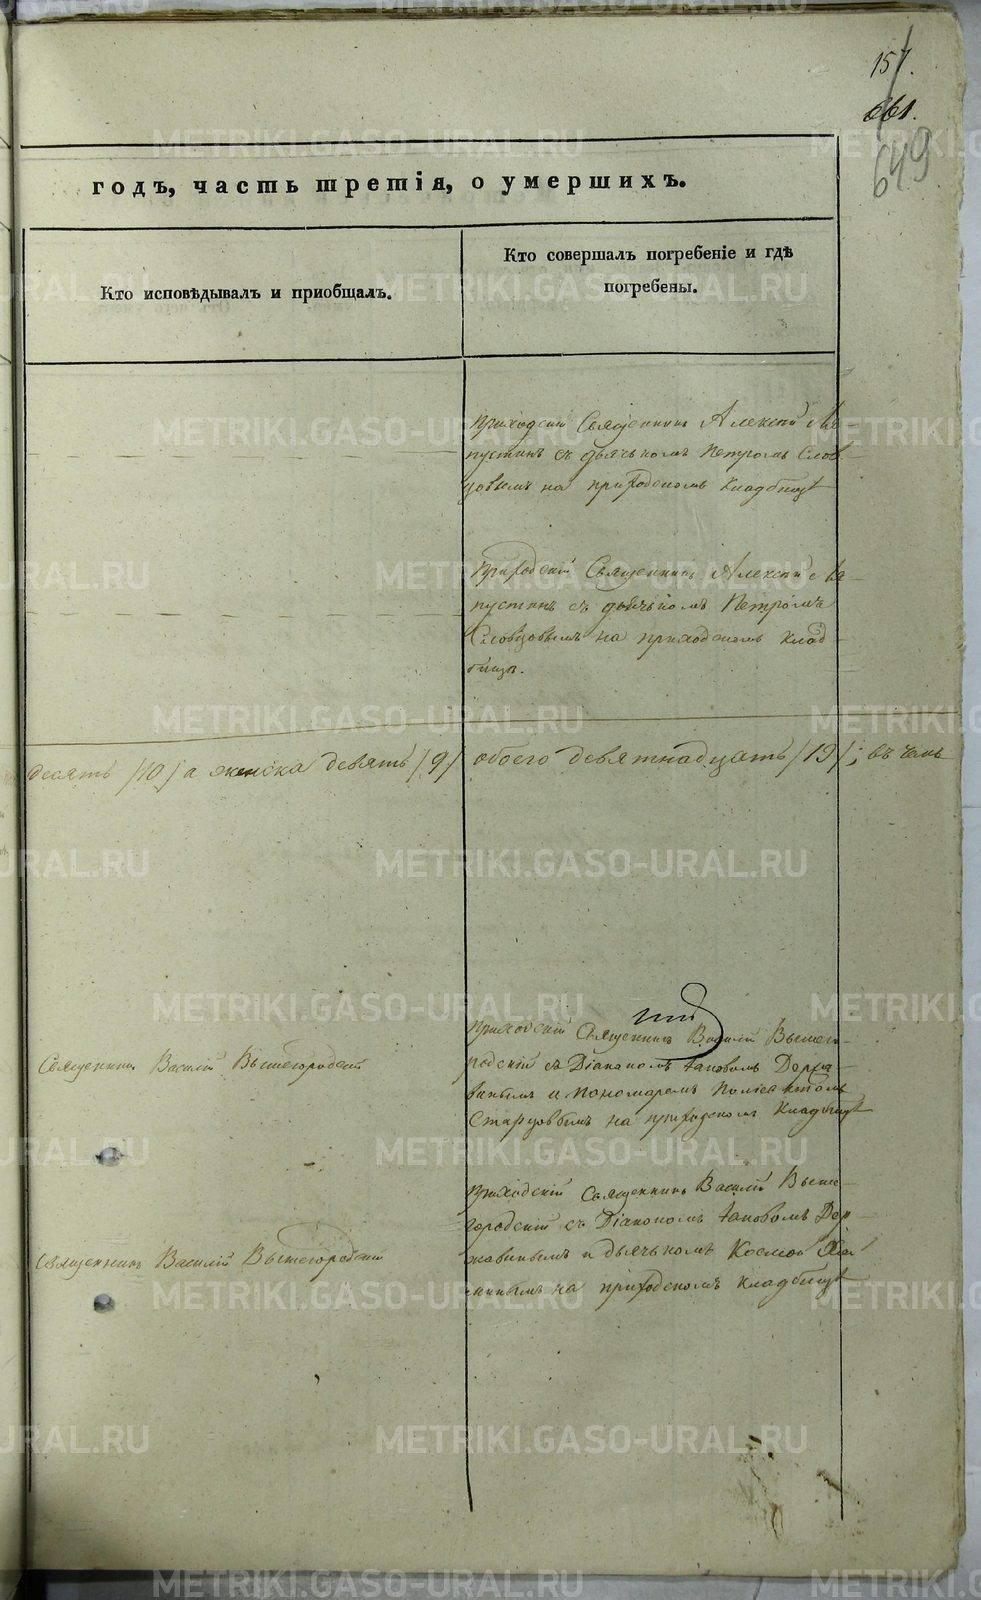 157.
661.
649
годъ, часть третія, о умершихъ.
Кто исповѣдывалъ и приобщалъ.
Кто совершалъ погребеніе и гдѣ
погребены.
Приходскій Священникъ Алексѣй Ла-
пустинъ съ дьячькомъ Петромъ Слов-
цовымъ на приходскомъ кладбищѣ
Приходскій Священникъ Алексѣй Ла-
пустинъ съ дьячькомъ Петромъ
Словцовымъ на приходскомъ клад-
бищѣ.
десять /10/ а женска девять /9/ обоего девятнадцать /19/; въ
Священникъ Василій Вышегородскій
Приходскій Священникъ Василій Вышего-
родскій съ Діакономъ Іаковомъ Держа-
винымъ и пономаремъ
Старцовымъ на приходскомъ кладбищѣ
Священникъ Василій Вышегородскій
Приходскій Священникъ Василій Выше-
городскій съ Діакономъ Іаковомъ Дер-
жавинымъ и дьячькомъ Космою
на приходскомъ кладбищѣ
METRIKI.GASO-URAL.RU